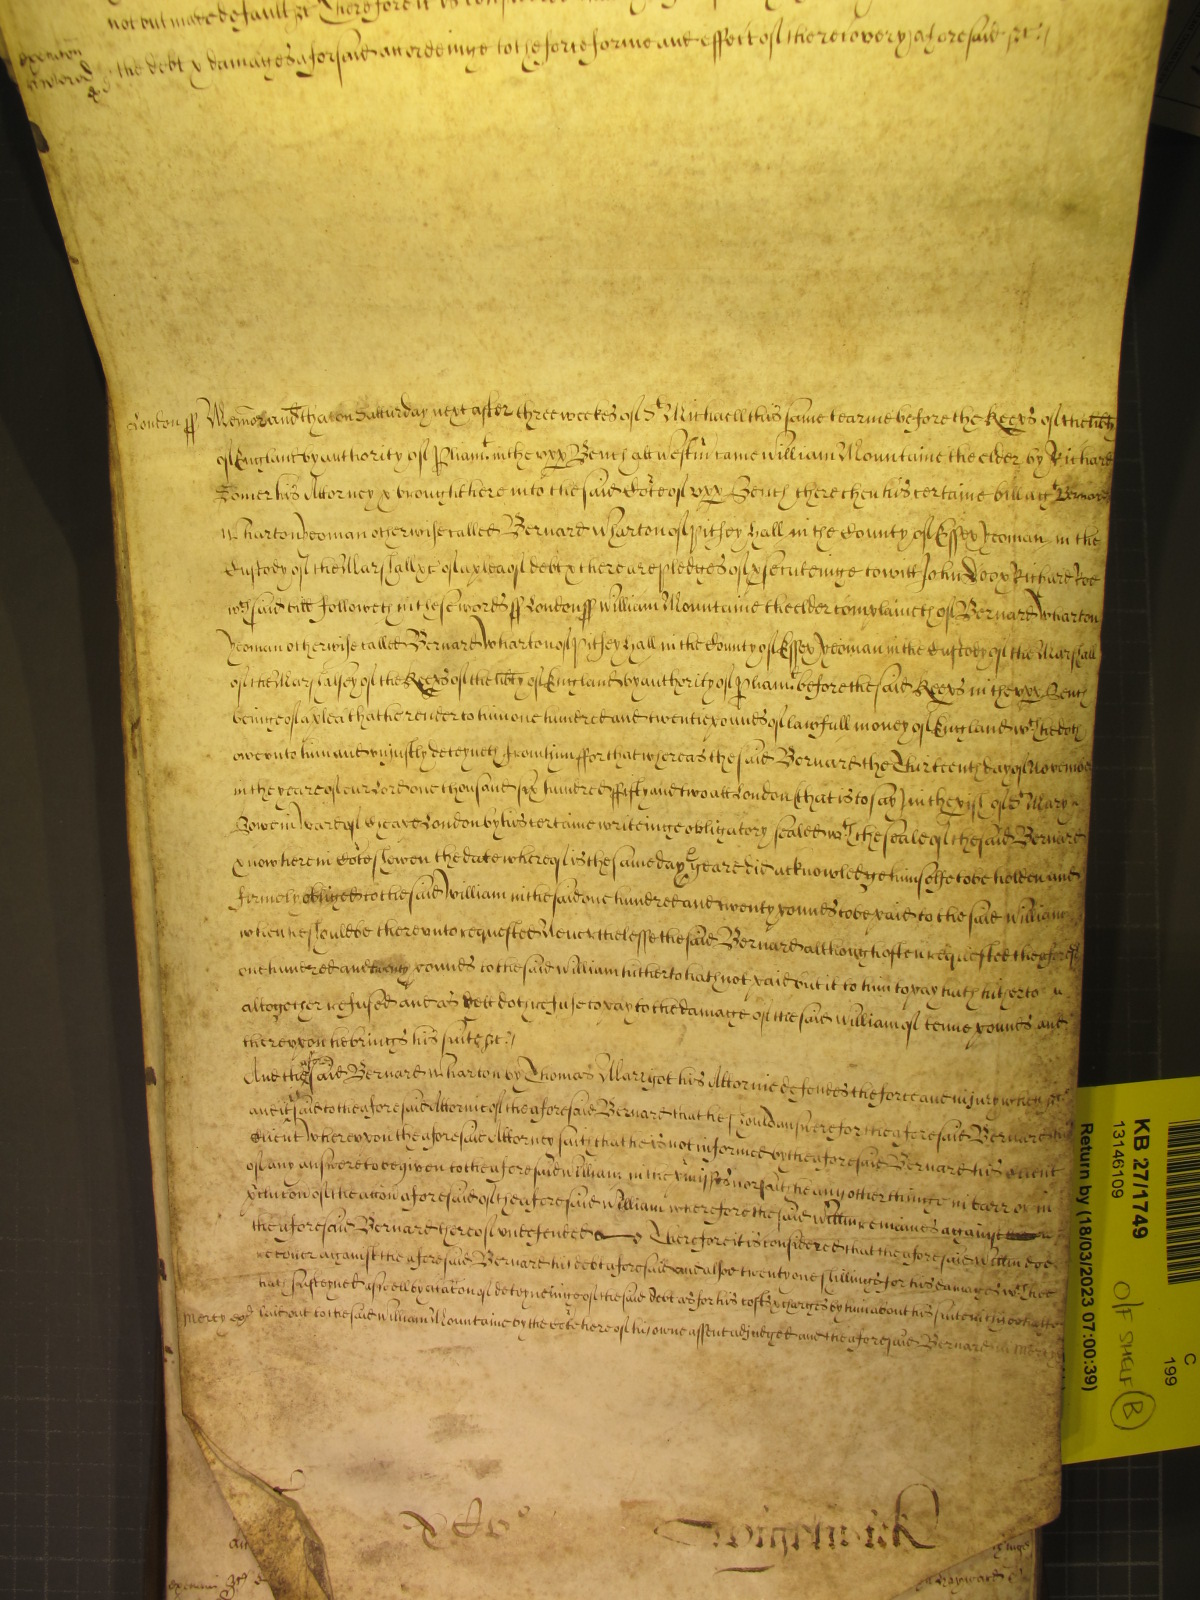 not but made default &c Therefore it is considered
execution
the debt & damages aforesaid accordeinge to the force forme and effect of the recovery aforesaid &c
London ss Memorand that on Satturday next after three weekes of St Michaell this same tearme before the Keeps of the libty
of England by authority of Pliamt in the vpp Bench att Westm came William Mountaine the elder by Richard
Tomer his Attorney & brought here into the said Cote of vpp Bench there then his certaine bill agt Bernard
Wharton yeoman otherwise called Bernard Wharton of Pitsey Hall in the County of Essex yeoman in the
Custody of the Marshall &c of a plea of debt & there are pledges of psecuteinge to witt John Doo & Richard Roe
wch said bill followeth in these words ss London ss William Mountaine the elder complaineth of Bernard Wharton
yeoman otherwise called Bernard Wharton of Pitsey Hall in the County of Essex yeoman in the Custody of the Marshall
of the Marshalsey of the Keeps of the libty of England by authority of Pliamt before the said Keeps in the vpp Bench
beinge of a plea that he render to him one hundred and twentie pounds of lawfull money of England wch he doth
owe unto him and uniustly deteyneth from him ffor that whereas the said Bernard the Thirteenth day of November
in the yeare of our Lord one thousand six hundred ffifty and two att London (that is to say) in the pish of St Mary
Bowe in Ward of Cheape London by his certaine writeinge obligatory sealed wth the seale of the said Bernard
& now here in Cote shewen the date whereof is the same day & yeare did acknowledge himselfe to be holden and
firmely obliged to the said William in the said one hundred and twenty pounds to be paid to the said William
when he should be thereunto requested Neverthelesse the said Bernard although often requested the aforesd
one hundred and twenty pounds to the said William hitherto hath not paid but it to him to pay hath hitherto
altogether refused and as yett doth refuse to pay to the damage of the said William of tenne pounds and
thereupon he brings his suite &c
And the aforesd said Bernard Wharton by Thomas Marryot his Attornie defendes the force and iniury when &c
and it is said to the aforesaid Attornie of the aforesaid Bernard that he should answere for the aforesaid Bernard his
Client whereupon the aforesaid Attorney saith that he is not informed by the aforesaid Bernard his Client
of any answere to be given to the aforesaid William in the pmisses nor saith he any other thinge in barr or in
pclucion of the accon aforesaid of the aforesaid William wherefore the said Willm remaines against
the aforesaid Bernard hereof undefended Therefore it is considered that the aforesaid Willm doe
recover against the aforesaid Bernard his debt aforesaid and alsoe twenty one shillings for his damages wch hee
hath susteyned aswell by occasion of deteyneinge of the said Debt as for his costs & charges by him about his suite in this behalfe
Mercy
laid out to the said William Mountaine by the Cote here of his owne assent adiudged and the aforesaid Bernard in mercy
KB 27/1749
13146109
Return by (18/03/2023 07:00:39)
O/F SHELF B
C
199